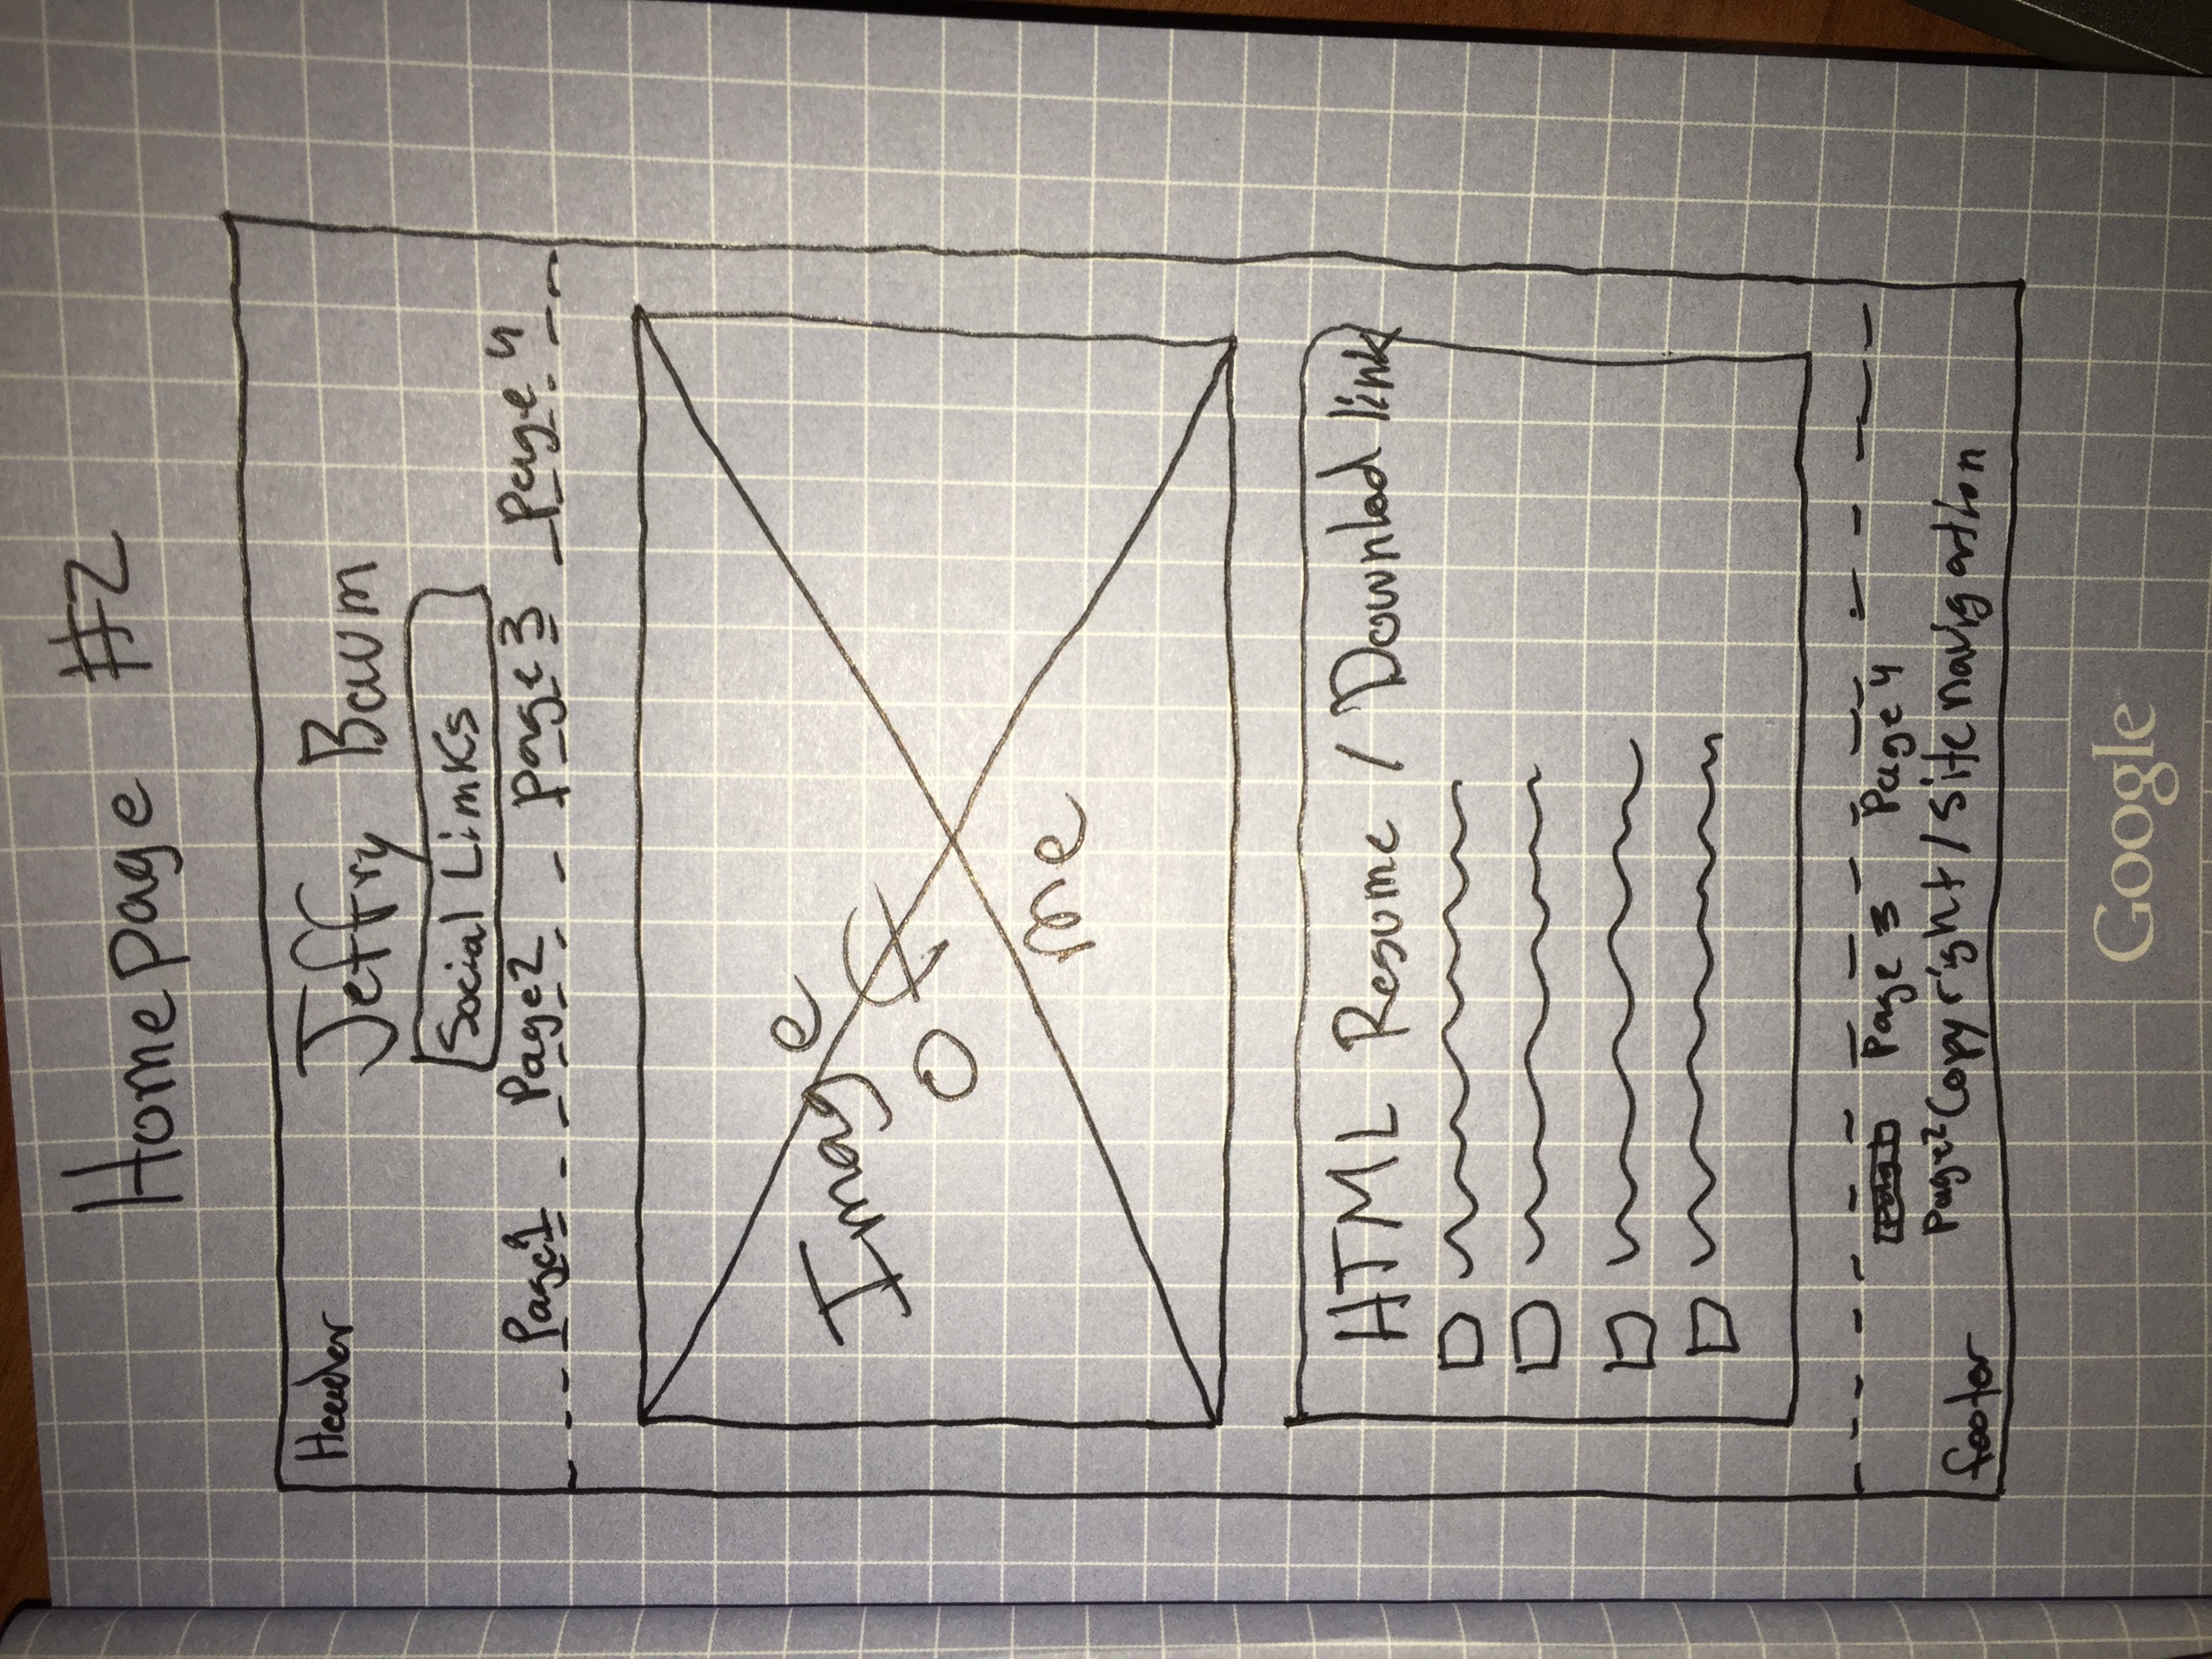 Homepage #2
Header
Jeffry Baum
Social Limks
Page1 Page2 page 3 page 4
Image
of
me
HTML Resume / Downlod link
Page 3 Page 4
Page2 Copyright / site navigation
footer
Google